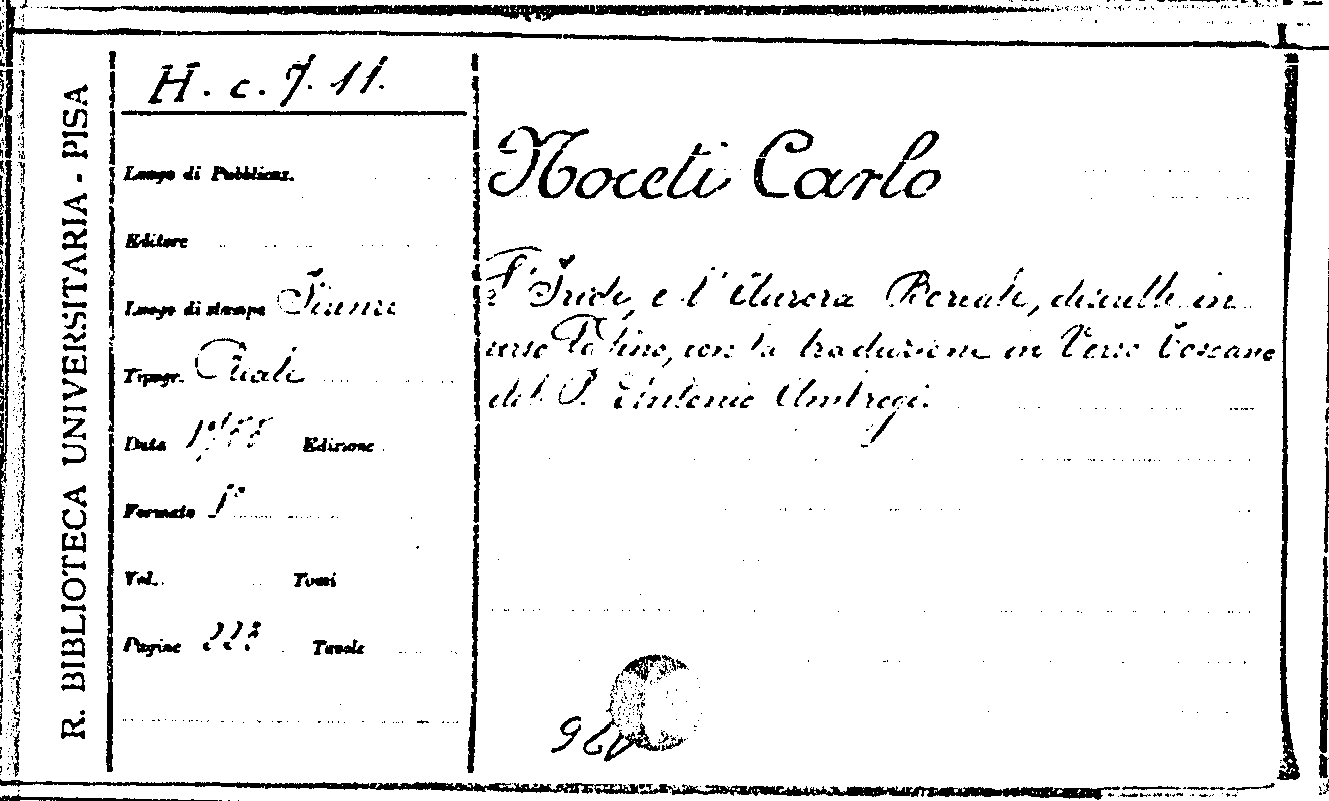 R. BIBLIOTECA UNIVERSITARIA - PISA
H. c. 7. 11.
Luogo di Pubblicaz.
Editore
Luogo di stampa Firenze
Tipogr.
Data Edizione
Formato
Vol. Tomi
Pagine 223 Tavole
Noceti Carlo
L'Iride, e l'Aurora Boreale, descritte in
verso Latino, con la traduzione in Verso Toscano
del P. Antonio Ambrogi.